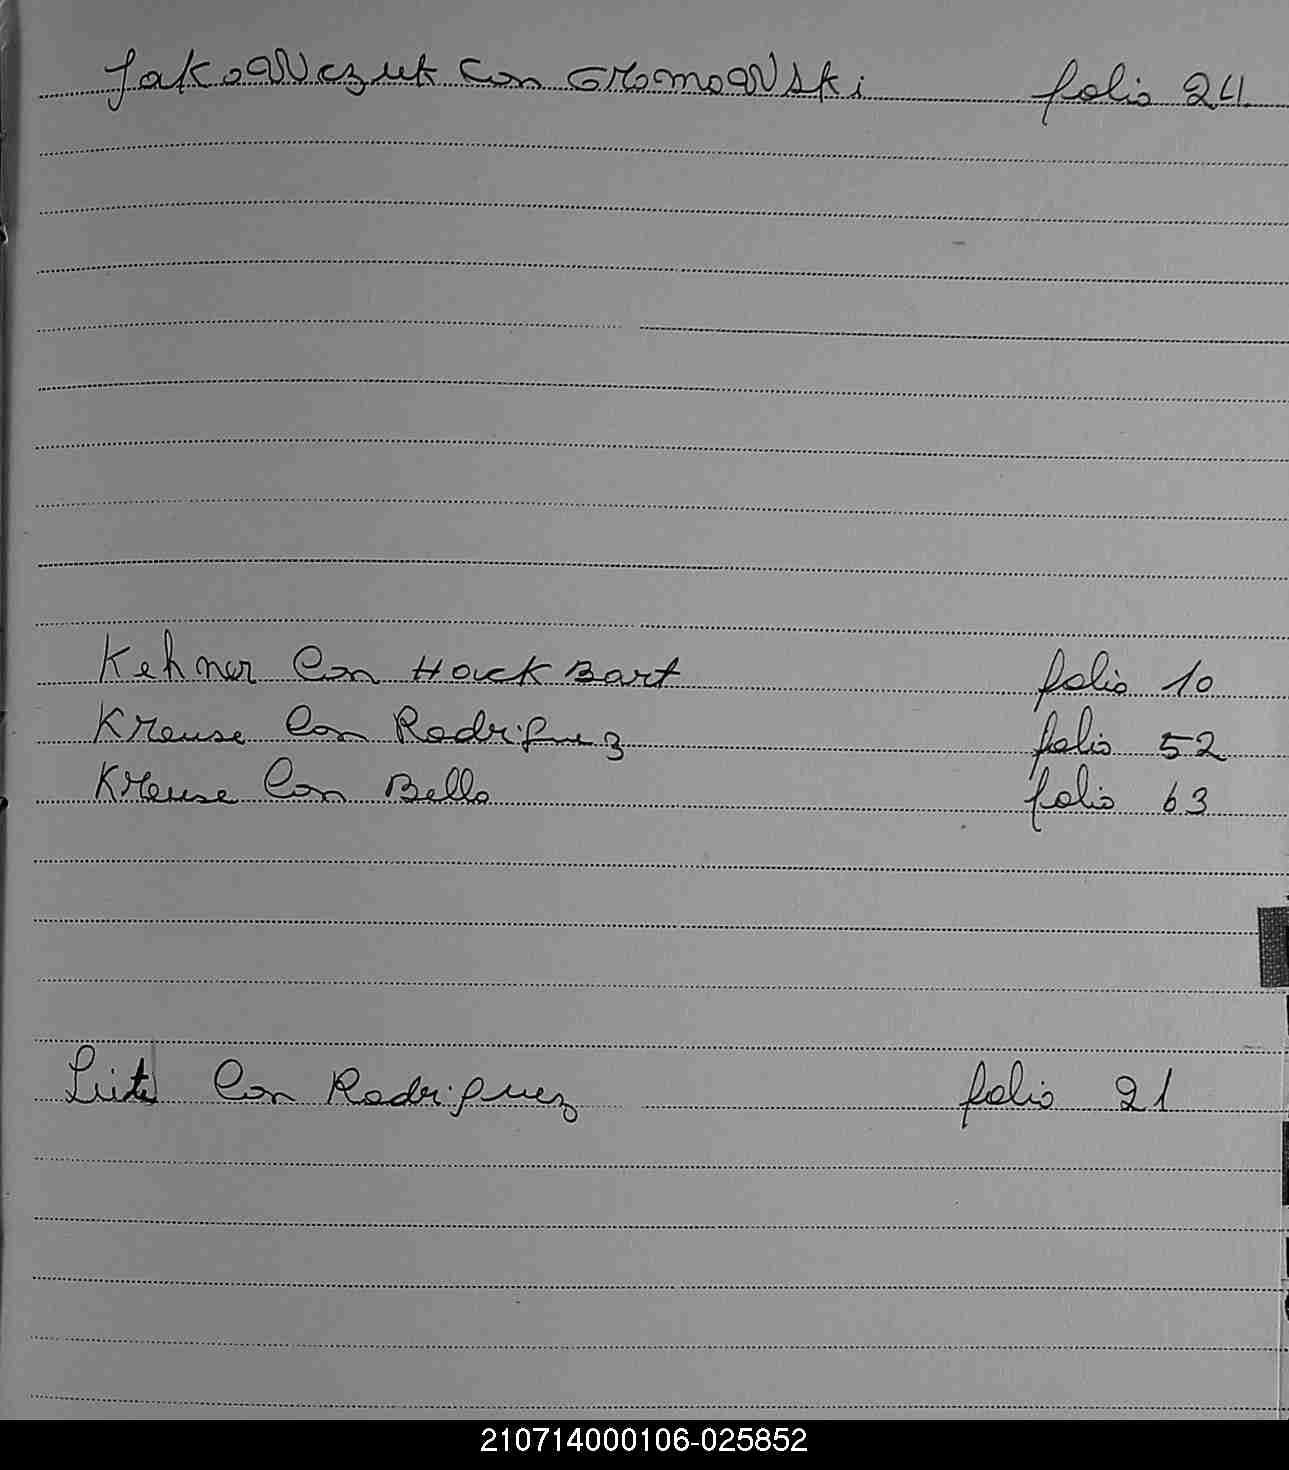 Jakowczuk Con Gromowski folio 24
Kehner Con Hock Bart folio 10
Kreuse Con Rodriguez folio 52
Kreuse Con Bello folio 63
Con Rodriguez folio 21
210714000106-025852